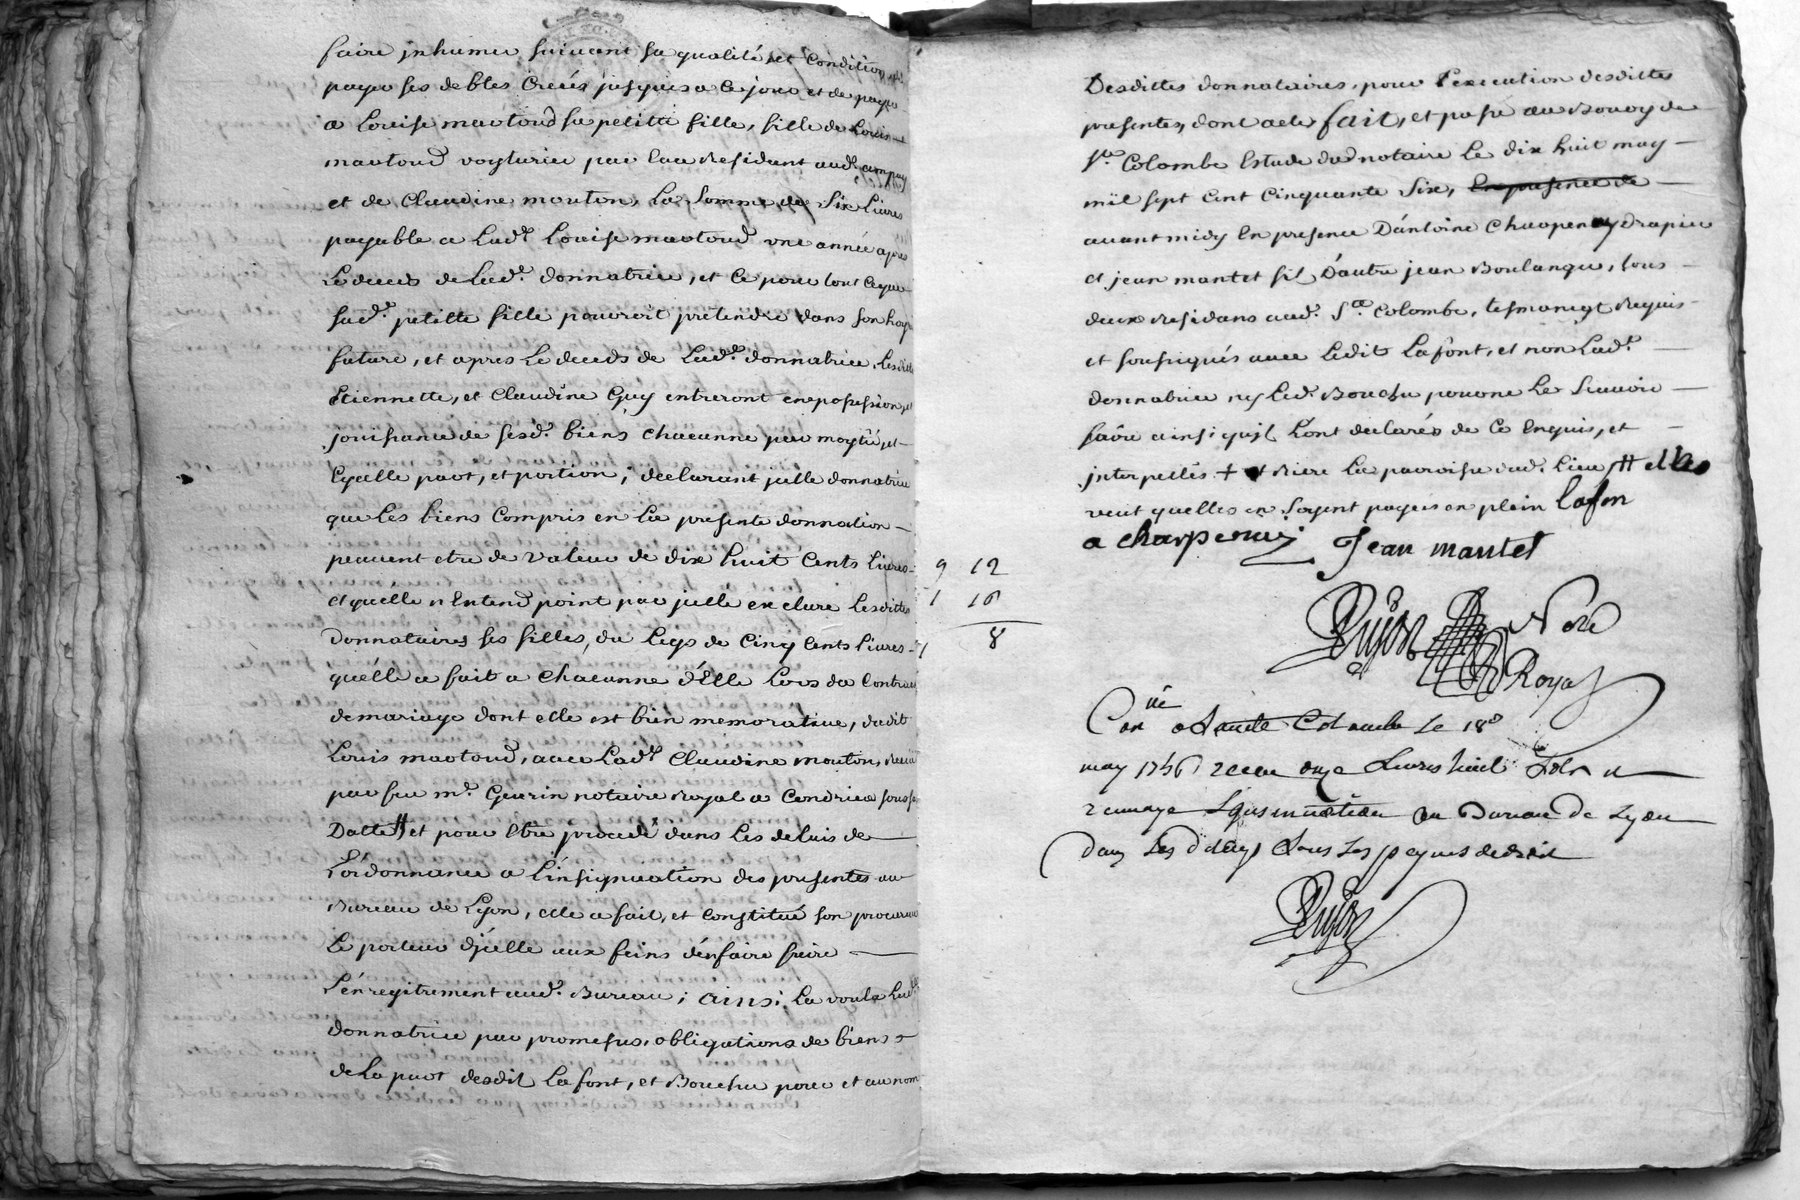 faire jnhumer suivant sa qualité et Condition, et
payer ses debtes Creés jusques a ce jour et de payer
a Louise martoud sa petitte fille, fille de Louis
martoud voyturier par eau Residant aud. ampuy
et de Claudine mouton, La Somme de Six Livres
payable a Lad.e Louise martoud une année apres
Le deces de Lad.e donnatrice, et ce pour tout ce que
sad.e petitte fille pourroit pretendre dans son hoyrie
future, et apres Le deceds de Lad.e donnatrice, Lesdittes
Etiennette, et Claudine Guy entreront en possession, et
jouissance de sesd. biens chacunne par moytié, et
Egalle part, et portion; declarant jcelle donnatrice
que Les biens Compris en La presente donnation
peuvent etre de valeur de dix huit Cents Livres
et quelle n'Entend point par jcelle exclure Lesdittes
donnataires ses filles, du Legs de Cinq Cents Livres
quélle a fait a Chacunne d'Elle Lors du Contract
de mariage dont elle est bien memorative, dudit
Louis martoud, avec Lad.e Claudine mouton, Receu
par feu m.e Guerin notaire Royal a Condrieu sous sa
Datte # et pour Etre procedé dans les delais de
L'ordonnance a L'insignuation des presentes au
Bureau de Lyon, elle a fait, et constitué son procureur
Le porteur d'jcelle aux feins d'en faire faire
L'enregitrement aud. Bureau; ainsi La voulu Lad.e
donnatrice par promesses, obligations de biens
de La part desdit Lafont, et Bouchu pour et au nom
9 12
1 16
1 8
Desdittes donnataires, pour L'execution desdittes
presentes, dont acte fait, et passé au Bourg de
s.te Colombe Estude dud notaire Le dix huit may
mil sept cent cinquante Six, En presence de
avant midy En presence D'antoine Charpenay drapier
et jean mantet fil D'autre jean Boulanger, tous
deux Residans aud. S.te Colombe, tesmoings Requis
et sousignés avec Ledit Lafont, et non Lad.e
donnatrice ny Led. Bouchu pour ne Le Scavoir
faire ainsi qu'jl Lont declarés de ce Enquis, et
jnterpellés + + Riere La parroisse dud. Lieu, # elle
veut quelles en soyent payées en plein Lafon
a charpenay Jean mantet
Dujon Not.re
Royal
Con.llé a Sainte Colombe le 18e
may 1756 receu onze Livres huit Sols
renvoye L'insinuation au Bureau De Lyon
Dans Les Delays Sous Les peynes de droit
Dujon